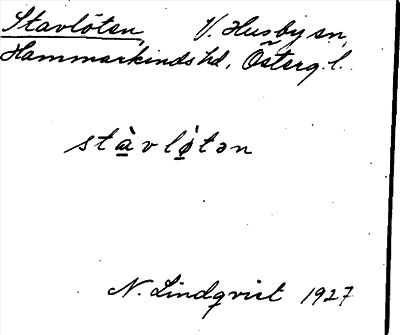 Stavlöten, V. Husby sn,
Hammarkinds hd, Österg. l.
stà̱vlø̱̀tən
N. Lindqvist 1927